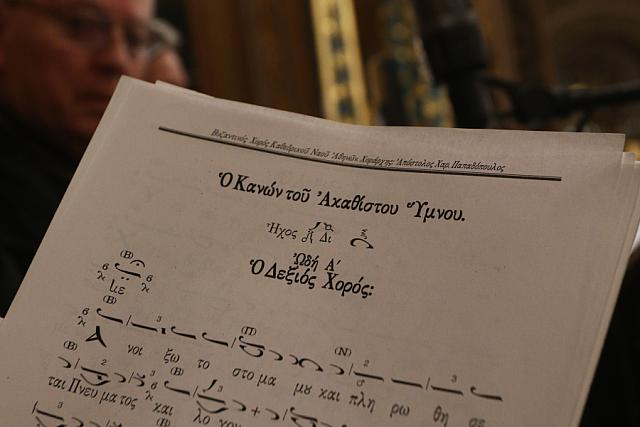 Βυζαντινός Χορός Καθεδρικού Ναού Ἀθηνῶν Χοράρχης Ἀπόστολος Χαρ. Παπαδόπουλος
Ὁ Κανών τοῦ Ἀκαθίστου Ὕμνου.
Ἦχος Δι
Ὠδή Α΄
Ὁ Δεξιός Χορός:
(Β)
(Β) (Π) (Ν)
Α νοι ξω το στο μα μου και πλη ρω θη σε
(Β) (Β)
ται Πνευ μα τος και λο γον